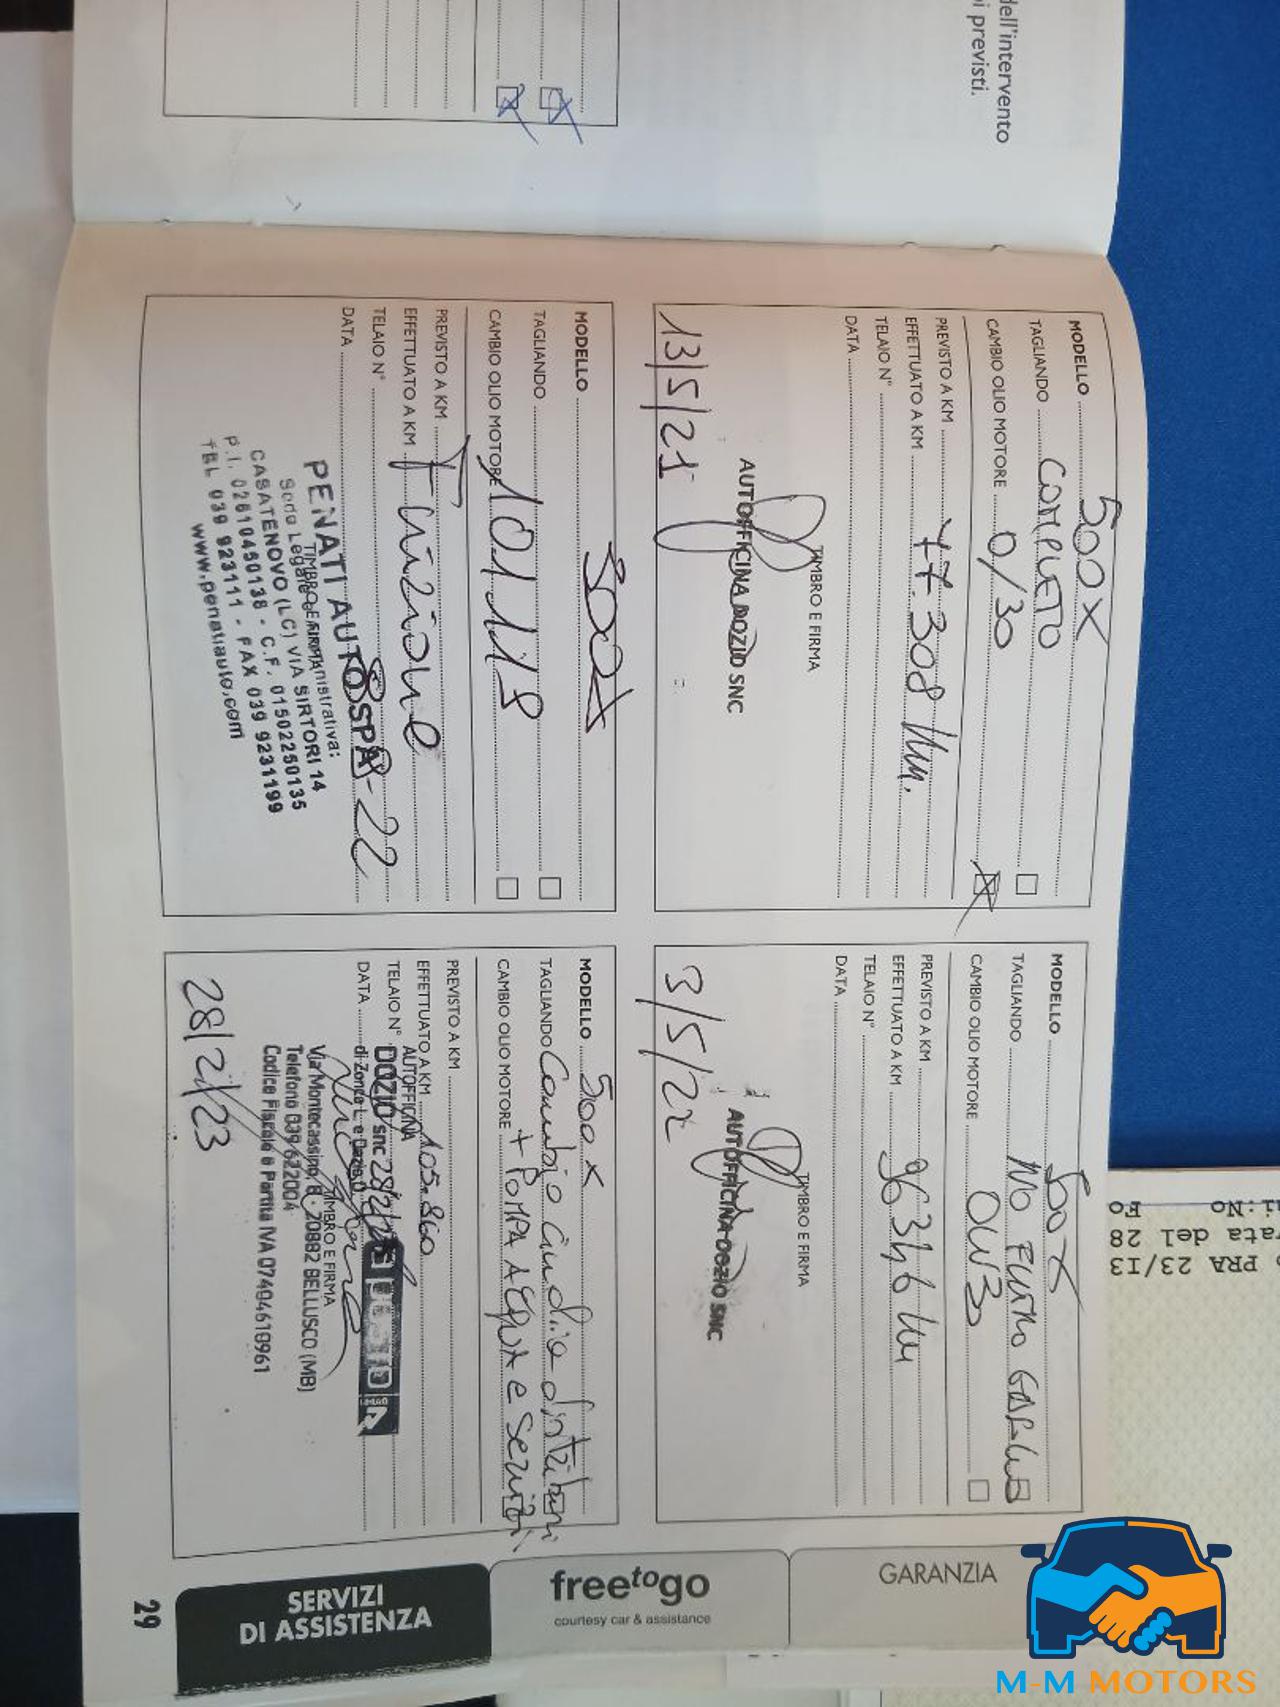 dell'intervento
i previsti.
MODELLO 500X
TAGLIANDO COMPLETO
CAMBIO OLIO MOTORE 0/30
PREVISTO A KM
EFFETTUATO A KM 77.308 Km.
TELAIO N°
DATA
TIMBRO E FIRMA
AUTOFFICINA DOZIO SNC
13/5/21
MODELLO 500X
TAGLIANDO NO FILTRO
CAMBIO OLIO MOTORE
PREVISTO A KM
EFFETTUATO A KM 96346 Km
TELAIO N°
DATA
TIMBRO E FIRMA
AUTOFFICINA DOZIO SNC
3/5/22
MODELLO 500X
TAGLIANDO
CAMBIO OLIO MOTORE 101.118
PREVISTO A KM
EFFETTUATO A KM
TELAIO N°
DATA
PENATI AUTO SPA
TIMBRO E FIRMA
Sede Legale e Amministrativa:
CASATENOVO (LC) VIA SIRTORI 14
P.I. 02610450136 - C.F. 01502250135
TEL 039 923111 - FAX 039 9231199
www.penatiauto.com
MODELLO 500X
TAGLIANDO Cambio cinghia distribuzi
CAMBIO OLIO MOTORE + POMPA ACQUA e servizi
PREVISTO A KM
EFFETTUATO A KM 105.860
TELAIO N°
DATA
AUTOFFICINA
DOZIO snc 28/2/23
TIMBRO E FIRMA
Via Montecassino, 8 - 20882 BELLUSCO (MB)
Telefono 039/622004
Codice Fiscale e Partita IVA 07404610961
28/2/23
GARANZIA
freetogo
courtesy car & assistance
SERVIZI
DI ASSISTENZA
29
PRA 23/13
rata del 28
i:No Fo
M-M MOTORS